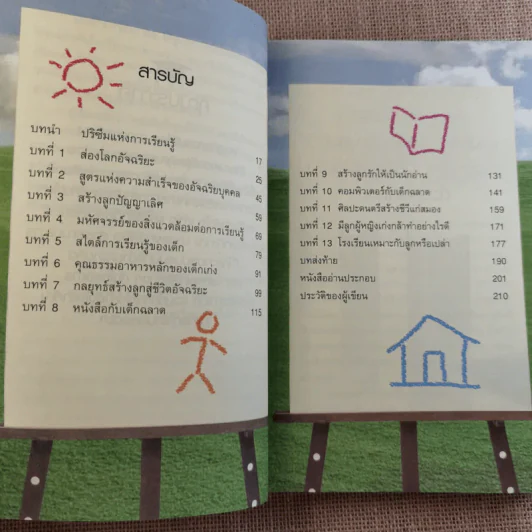 สารบัญ
บทนำ ปริซึมแห่งการเรียนรู้ 17
บทที่ 1 ส่องโลกอัจฉริยะ 25
บทที่ 2 สูตรแห่งความสำเร็จของอัจฉริยบุคคล 45
บทที่ 3 สร้างลูกปัญญาเลิศ 59
บทที่ 4 มหัศจรรย์ของสิ่งแวดล้อมต่อการเรียนรู้ 69
บทที่ 5 สไตล์การเรียนรู้ของเด็ก 79
บทที่ 6 คุณธรรมอาหารหลักของเด็กเก่ง 91
บทที่ 7 กลยุทธ์สร้างลูกสู่ชีวิตอัจฉริยะ 99
บทที่ 8 หนังสือกับเด็กฉลาด 115
บทที่ 9 สร้างลูกรักให้เป็นนักอ่าน 131
บทที่ 10 คอมพิวเตอร์กับเด็กฉลาด 141
บทที่ 11 ศิลปะดนตรีสร้างชีวีแก่สมอง 159
บทที่ 12 มีลูกผู้หญิงเก่งกล้าทำอย่างไรดี 171
บทที่ 13 โรงเรียนเหมาะกับลูกหรือเปล่า 177
บทส่งท้าย 190
หนังสืออ่านประกอบ 201
ประวัติของผู้เขียน 210